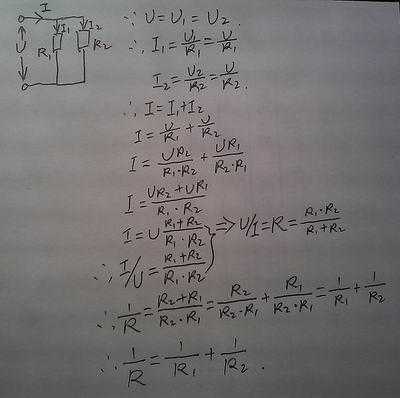 I
I₁ I₂
U R₁ R₂
∵ U = U₁ = U₂.
∴ I₁ = U₁/R₁ = U/R₁
I₂ = U₂/R₂ = U/R₂.
∴ I = I₁ + I₂
I = U/R₁ + U/R₂
I = UR₂/R₁·R₂ + UR₁/R₂·R₁
I = UR₂ + UR₁/R₁·R₂
I = U R₁+R₂/R₁·R₂
⇒ U/I = R = R₁·R₂/R₁+R₂
∴ I/U = R₁+R₂/R₁·R₂
∴ 1/R = R₂+R₁/R₂·R₁ = R₂/R₂·R₁ + R₁/R₂·R₁ = 1/R₁ + 1/R₂
∴ 1/R = 1/R₁ + 1/R₂.